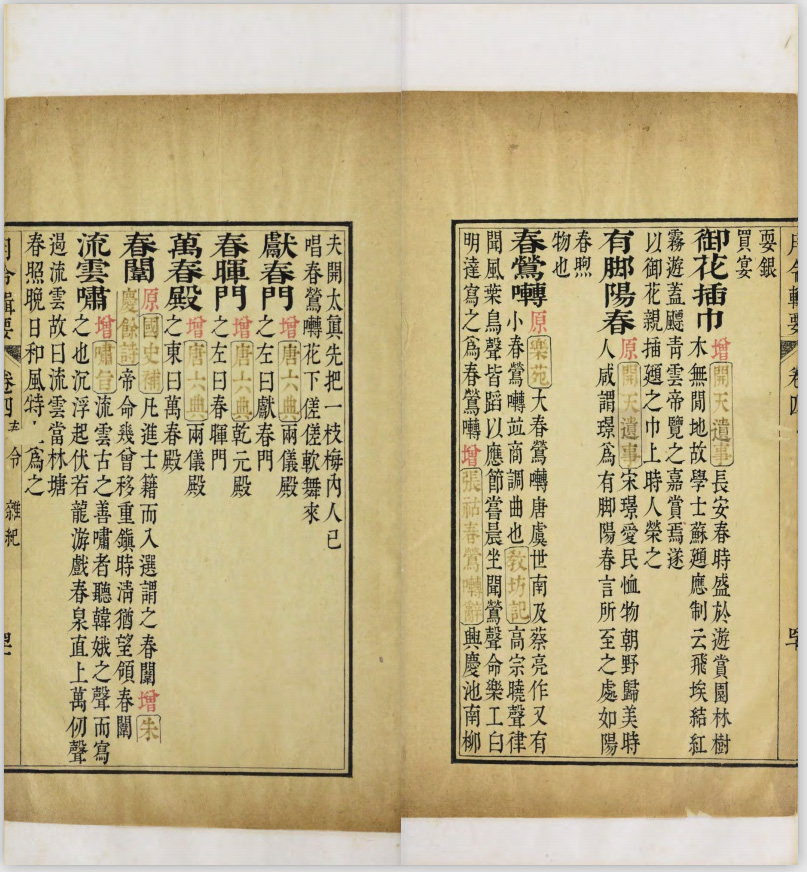 月令輯要 卷四
耍銀
買宴
御花插巾 增開天遺事長安春時盛於遊賞園林樹
木無閒地故學士蘇頲應制云飛埃結紅
霧遊蓋飃青雲帝覽之嘉賞焉遂
以御花親插頲之巾上時人榮之
有脚陽春 原開天遺事宋璟愛民恤物朝野歸美時
人咸謂璟爲有脚陽春言所至之處如陽
春煦
物也
春鶯囀 原樂苑大春鶯囀唐虞世南及蔡亮作又有
小春鶯囀竝商調曲也教坊記高宗曉聲律
聞風葉鳥聲皆蹈以應節嘗晨坐聞鶯聲命樂工白
明達寫之爲春鶯囀增張祜春鶯囀辭興慶池南柳
夫開太眞先把一枝梅內人已
唱春鶯囀花下傞傞軟舞來
獻春門 增唐六典兩儀殿
之左曰獻春門
春暉門 增唐六典乾元殿
之左曰春暉門
萬春殿 增唐六典兩儀殿
之東曰萬春殿
春闈 原國史補凡進士籍而入選謂之春闈增朱
慶餘詩帝命幾曾移重鎭時淸猶望領春闈
流雲嘯 增嘯旨流雲古之善嘯者聽韓娥之聲而寫
之也沉浮起伏若龍游戲春泉直上萬仞聲
過流雲故曰流雲當林塘
春照晚日和風特爲之
月令輯要 卷四 令 雜紀